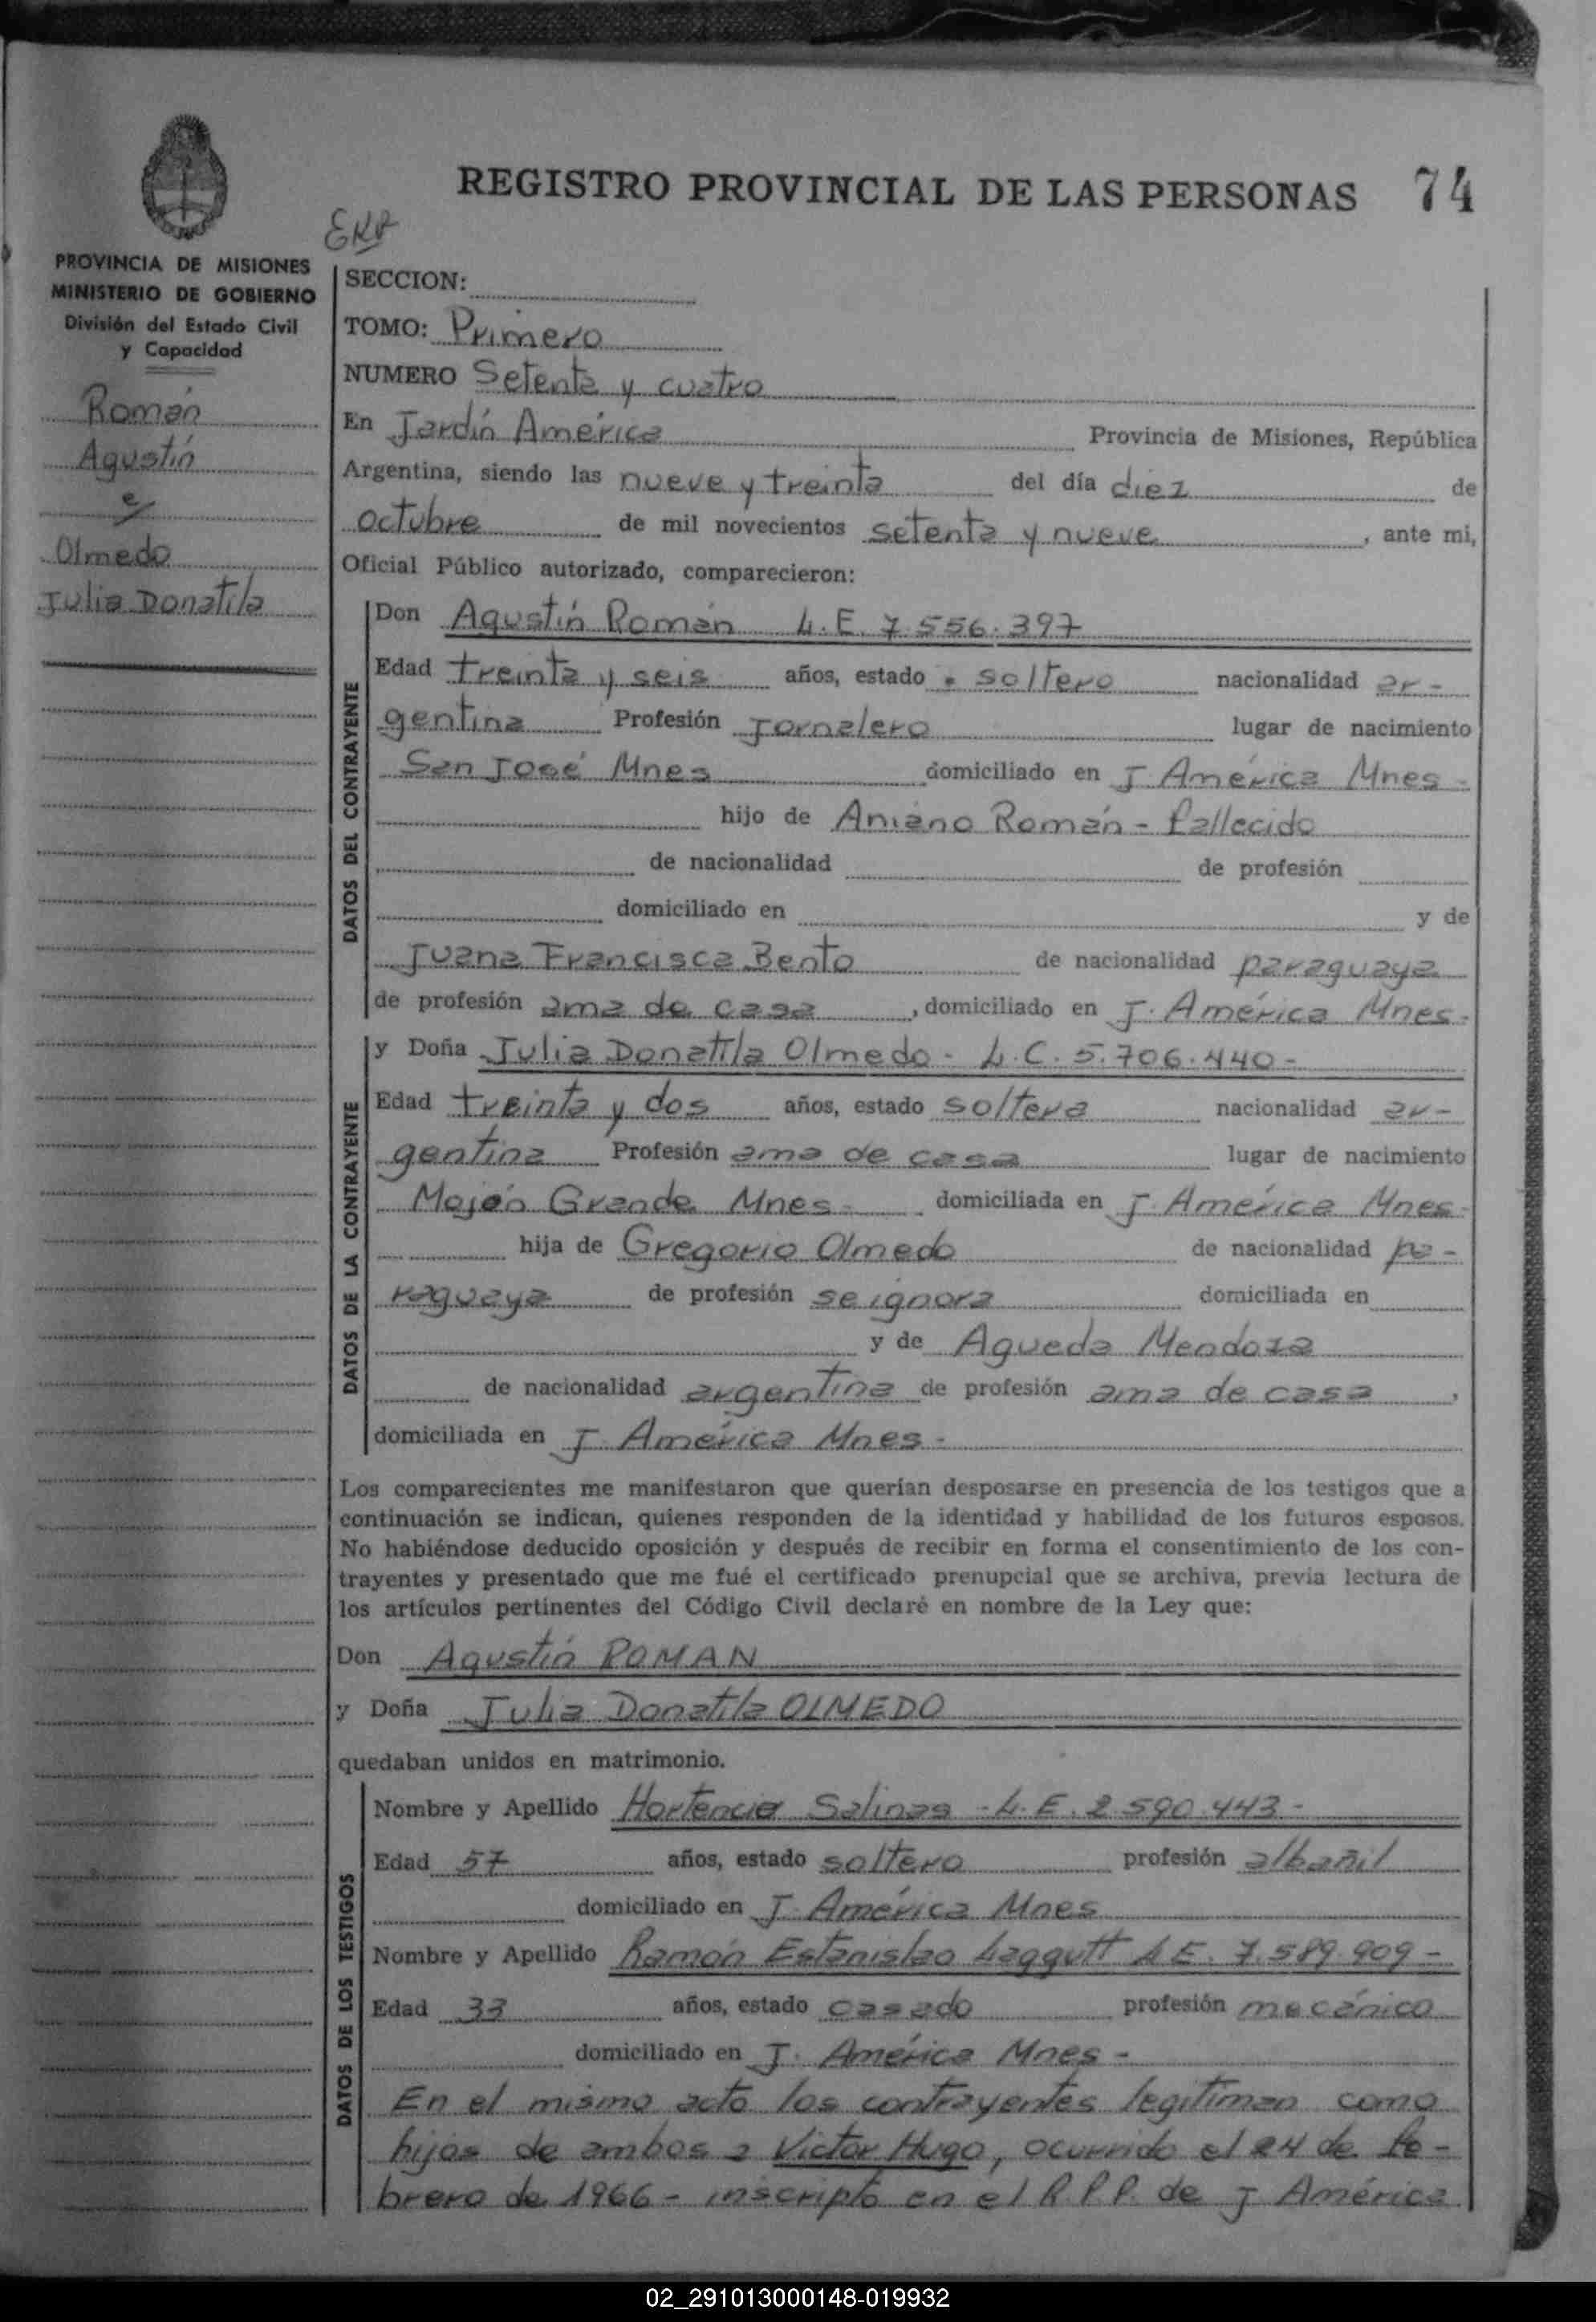 REGISTRO PROVINCIAL DE LAS PERSONAS 74
PROVINCIA DE MISIONES
MINISTERIO DE GOBIERNO
División del Estado Civil
y Capacidad
Román
Agustín
y
Olmedo
Julia Donatila
SECCION:
TOMO: Primero
NUMERO Setenta y cuatro
En Jardín América Provincia de Misiones, República
Argentina, siendo las nueve y treinta del día diez de
octubre de mil novecientos setenta y nueve, ante mi,
Oficial Público autorizado, comparecieron:
DATOS DEL CONTRAYENTE
Don Agustín Román L.E. 7.556.397
Edad treinta y seis años, estado soltero nacionalidad ar-
gentina Profesión Jornalero lugar de nacimiento
San José Mnes domiciliado en J. América Mnes-
hijo de Aniano Román - fallecido
de nacionalidad de profesión
domiciliado en y de
Juana Francisca Bento de nacionalidad paraguaya
de profesión ama de casa, domiciliado en J. América Mnes.
DATOS DE LA CONTRAYENTE
y Doña Julia Donatila Olmedo - L.C. 5.706.440-
Edad treinta y dos años, estado soltera nacionalidad ar-
gentina Profesión ama de casa lugar de nacimiento
Mojón Grande Mnes- domiciliada en J. América Mnes-
hija de Gregorio Olmedo de nacionalidad pa-
raguaya de profesión se ignora domiciliada en
y de Agueda Mendoza
de nacionalidad argentina de profesión ama de casa,
domiciliada en J. América Mnes-
Los comparecientes me manifestaron que querían desposarse en presencia de los testigos que a
continuación se indican, quienes responden de la identidad y habilidad de los futuros esposos.
No habiéndose deducido oposición y después de recibir en forma el consentimiento de los con-
trayentes y presentado que me fué el certificado prenupcial que se archiva, previa lectura de
los artículos pertinentes del Código Civil declaré en nombre de la Ley que:
Don Agustín ROMAN
y Doña Julia Donatila OLMEDO
quedaban unidos en matrimonio.
DATOS DE LOS TESTIGOS
Nombre y Apellido Hortencio Salinas - L.E. 2.590.443-
Edad 57 años, estado soltero profesión albañil
domiciliado en J. América Mnes
Nombre y Apellido Ramón Estanislao L.E. 7.589.909-
Edad 33 años, estado casado profesión mecánico
domiciliado en J. América Mnes-
En el mismo acto los contrayentes legitiman como
hijos de ambos a Victor Hugo, ocurrido el 24 de fe-
brero de 1966 - inscripto en el R.P.P. de J América
02_291013000148-019932